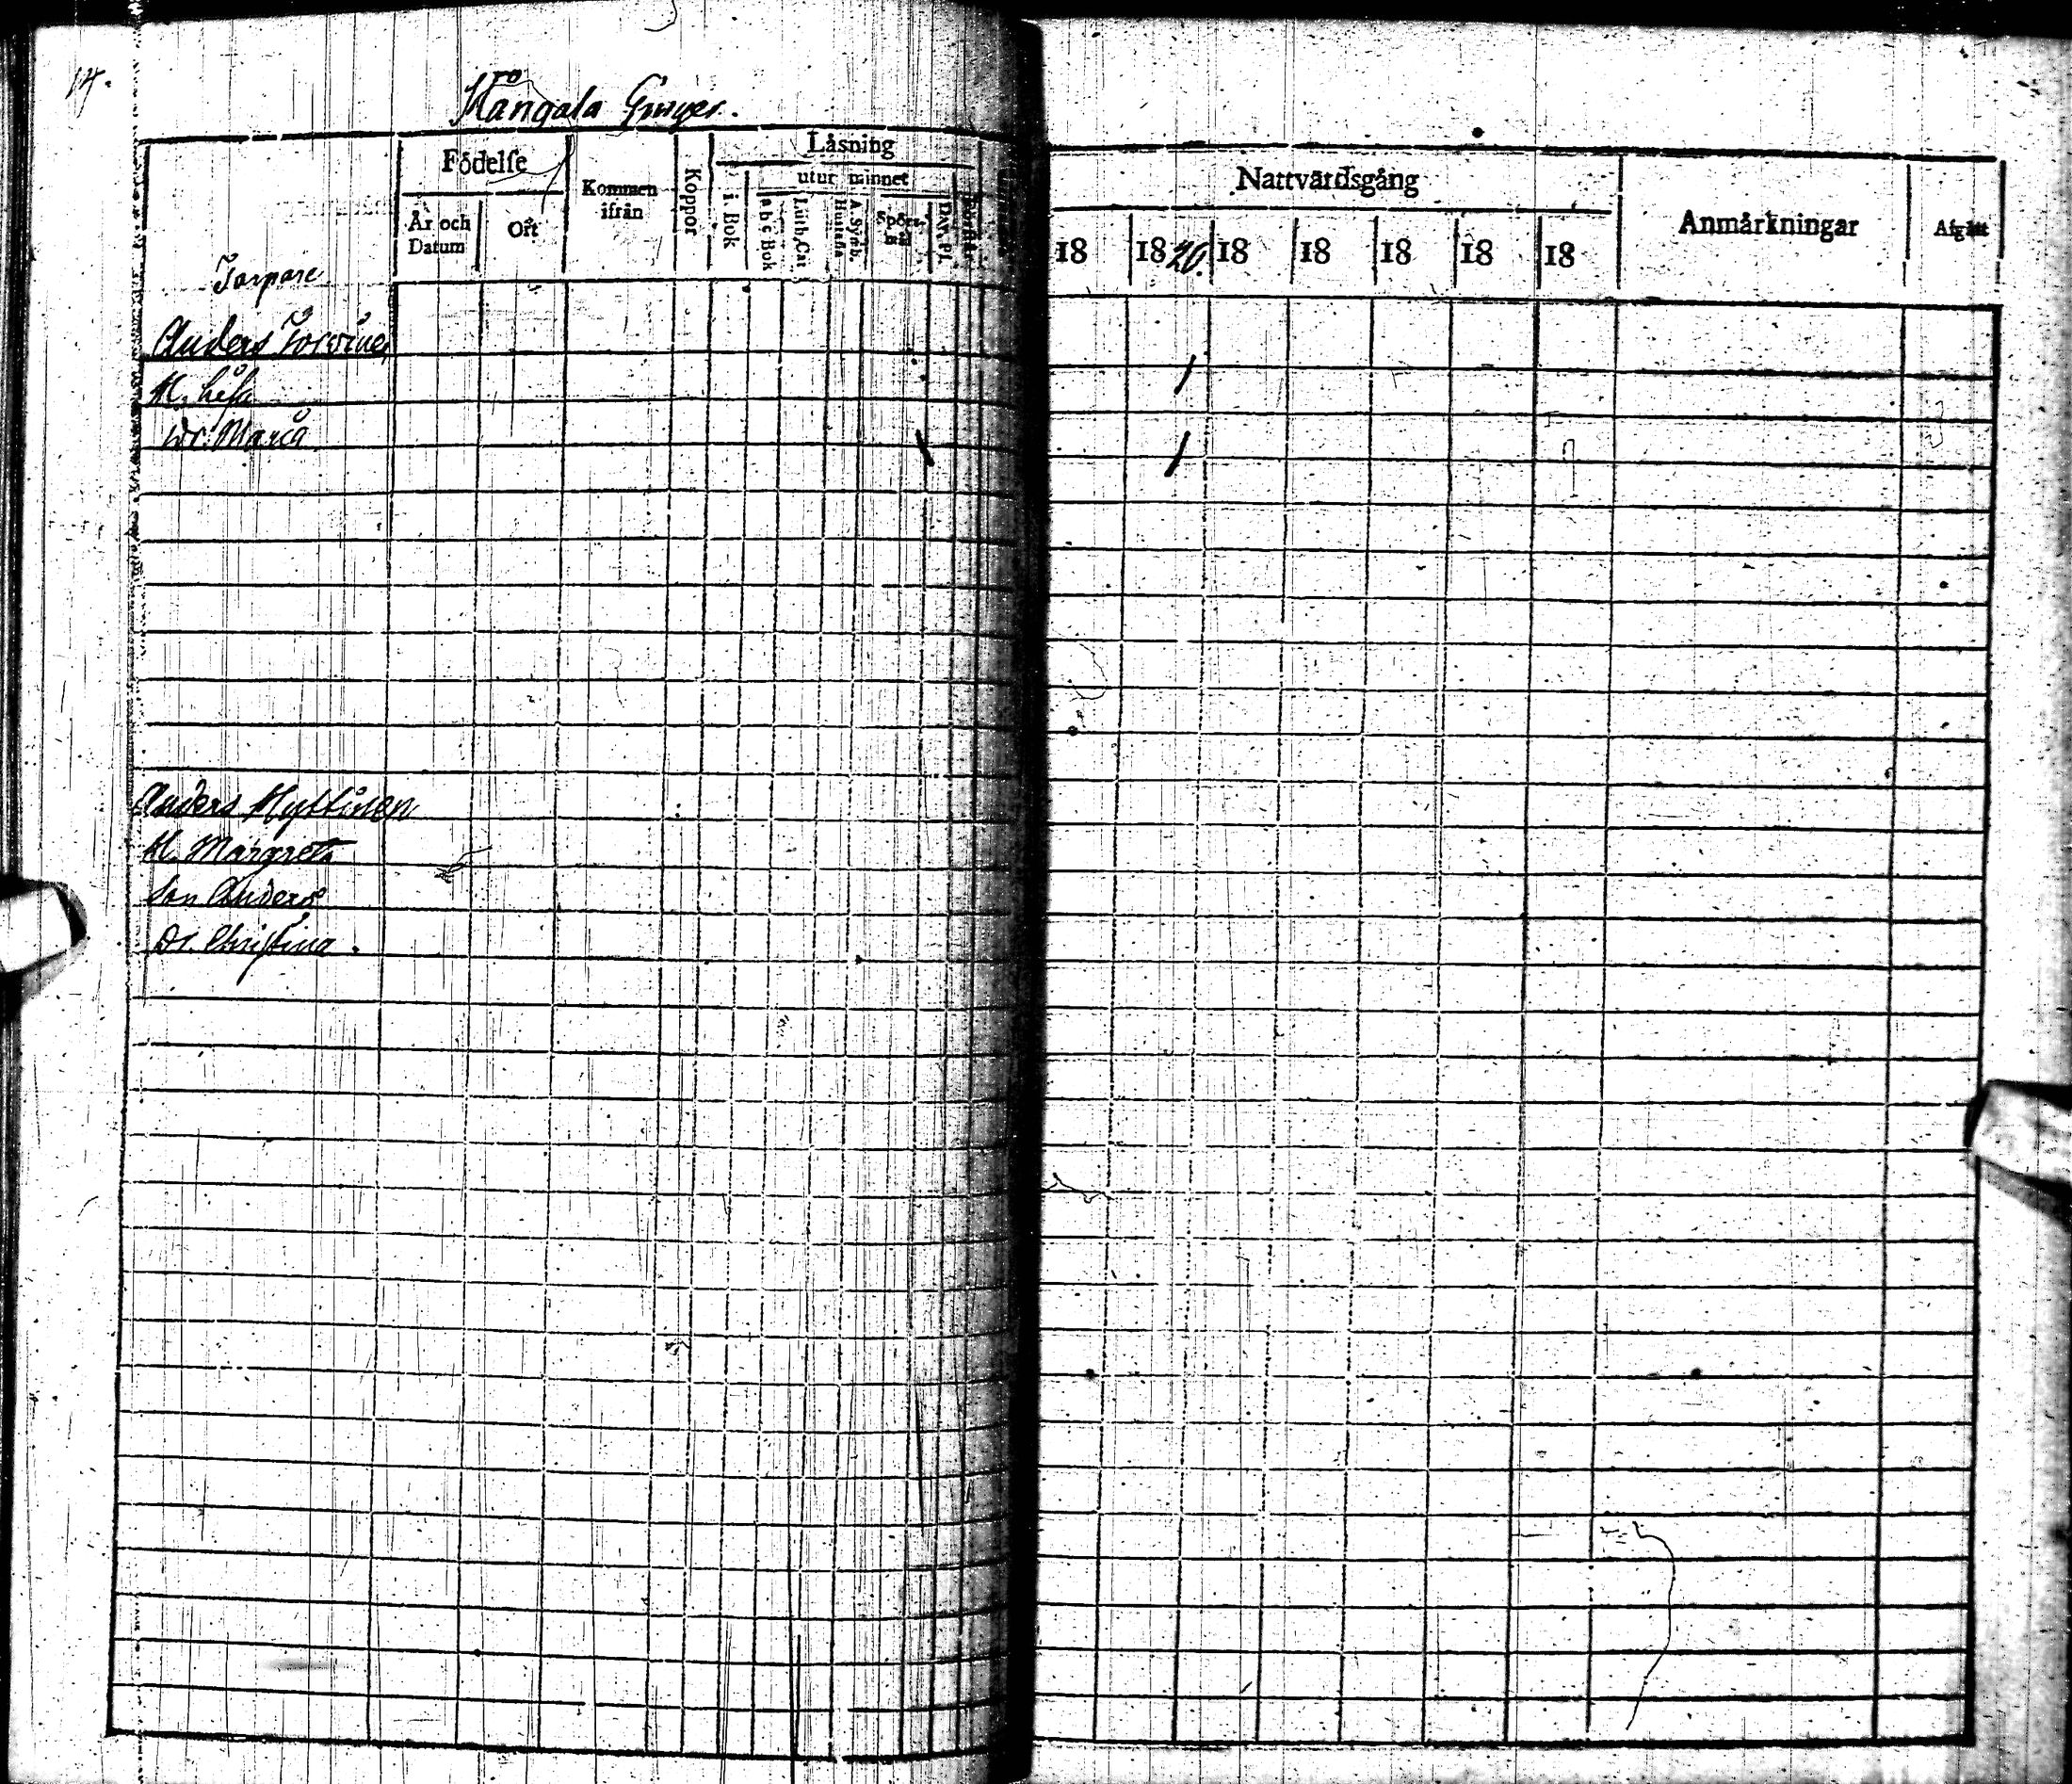 14.
Födelse
Kommen ifrån
Koppor
Läsning
utur minnet
År och Datum
Ort
i Bok
a b c Bok
Luth. Cat
Hustafla
A. Symb.
Spörsmål
Dav. Ps.
Nattvardsgång
Anmärkningar
Afgått
18
1820.
18
18
18
18
18
Torpare
Anders
H. Lisa
Dr. Maria
Anders Hyttinen
H. Margreta
Son Anders
Dr. Christina.